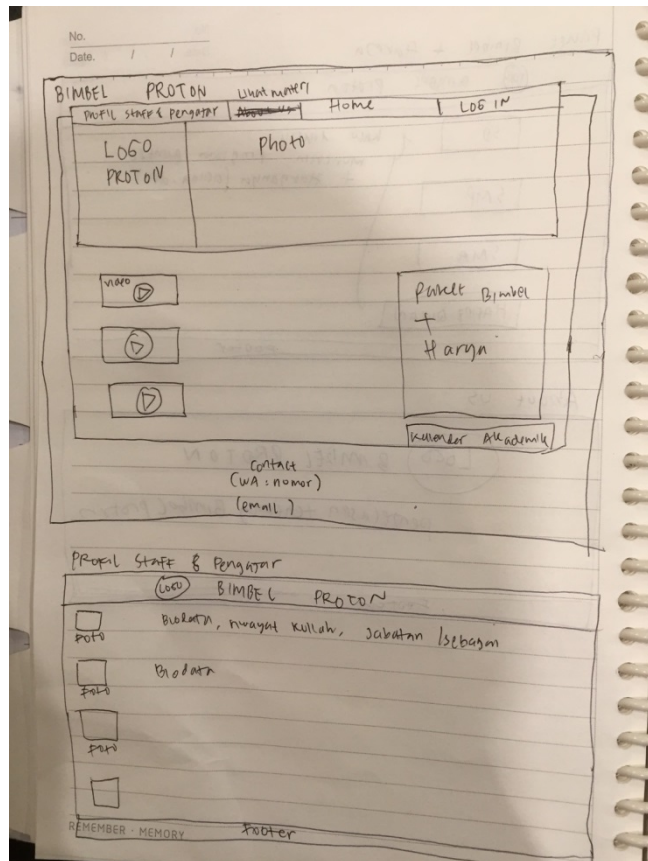 No.
Date. / /
BIMBEL PROTON
Profil Staff & Pengajar About Us Lihat materi Home LOG IN
LOGO
PROTON
Photo
Video
Paket Bimbel
+
Harga
Kalender Akademik
Contact
(WA : nomor)
(email)
Profil Staff & Pengajar
LOGO BIMBEL PROTON
Foto
Biodata, riwayat kuliah, Jabatan /sebagai
Foto
Biodata
Foto
Footer
REMEMBER · MEMORY